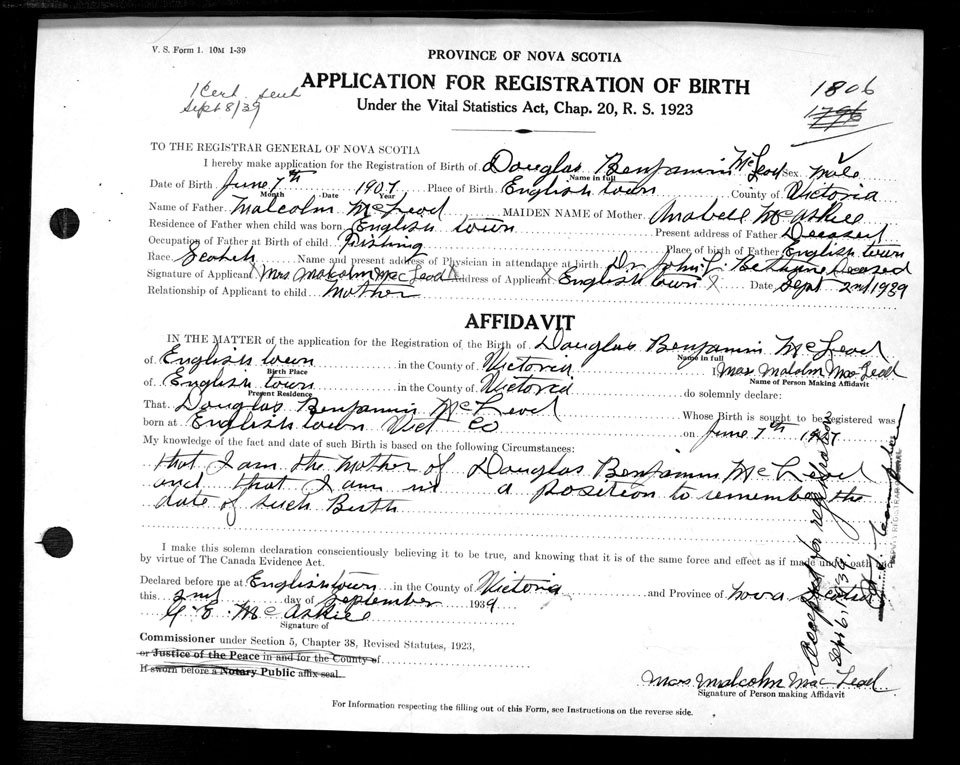 V. S. Form 1. 10M 1-39
PROVINCE OF NOVA SCOTIA
APPLICATION FOR REGISTRATION OF BIRTH
Under the Vital Statistics Act, Chap. 20, R. S. 1923
1 Cert. sent
Sept 8/39
1806
TO THE REGISTRAR GENERAL OF NOVA SCOTIA
I hereby make application for the Registration of Birth of Douglas Benjamin McLeod Sex Male
Name in full
Date of Birth June 7th 1907 Place of Birth English town County of Victoria
Month Date Year
Name of Father Malcolm McLeod MAIDEN NAME of Mother Anabell McAskill
Residence of Father when child was born English town Present address of Father Deceased
Occupation of Father at Birth of child Fishing Place of birth of Father English town
Race Scotch Name and present address of Physician in attendance at birth Dr. John L. Bethune Deceased
Signature of Applicant X Mrs Malcolm MacLeod X Address of Applicant X English town X Date Sept 2nd 1939
Relationship of Applicant to child Mother
AFFIDAVIT
IN THE MATTER of the application for the Registration of the Birth of Douglas Benjamin McLeod
Name in full
of English town in the County of Victoria I Mrs Malolm MacLeod
Birth Place Name of Person Making Affidavit
of English town in the County of Victoria do solemnly declare:
Present Residence
That Douglas Benjamin McLeod Whose Birth is sought to be registered was
born at English town Vict Co on June 7th 1907
My knowledge of the fact and date of such Birth is based on the following Circumstances:
that I am the Mother of Douglas Benjamin McLeod
and that I am in a position to remember the
date of such Birth
I make this solemn declaration conscientiously believing it to be true, and knowing that it is of the same force and effect as if made under oath and
by virtue of The Canada Evidence Act.
Declared before me at Englishtown in the County of Victoria and Province of Nova Scotia
this 2nd day of September 1939
G. E. McAskill
Signature of
Commissioner under Section 5, Chapter 38, Revised Statutes, 1923,
or Justice of the Peace in and for the County of
If sworn before a Notary Public affix seal.
Mrs Malcolm MacLeod
Signature of Person making Affidavit
For Information respecting the filling out of this Form, see Instructions on the reverse side.
Accepted for registration
Sept 6, 1939.